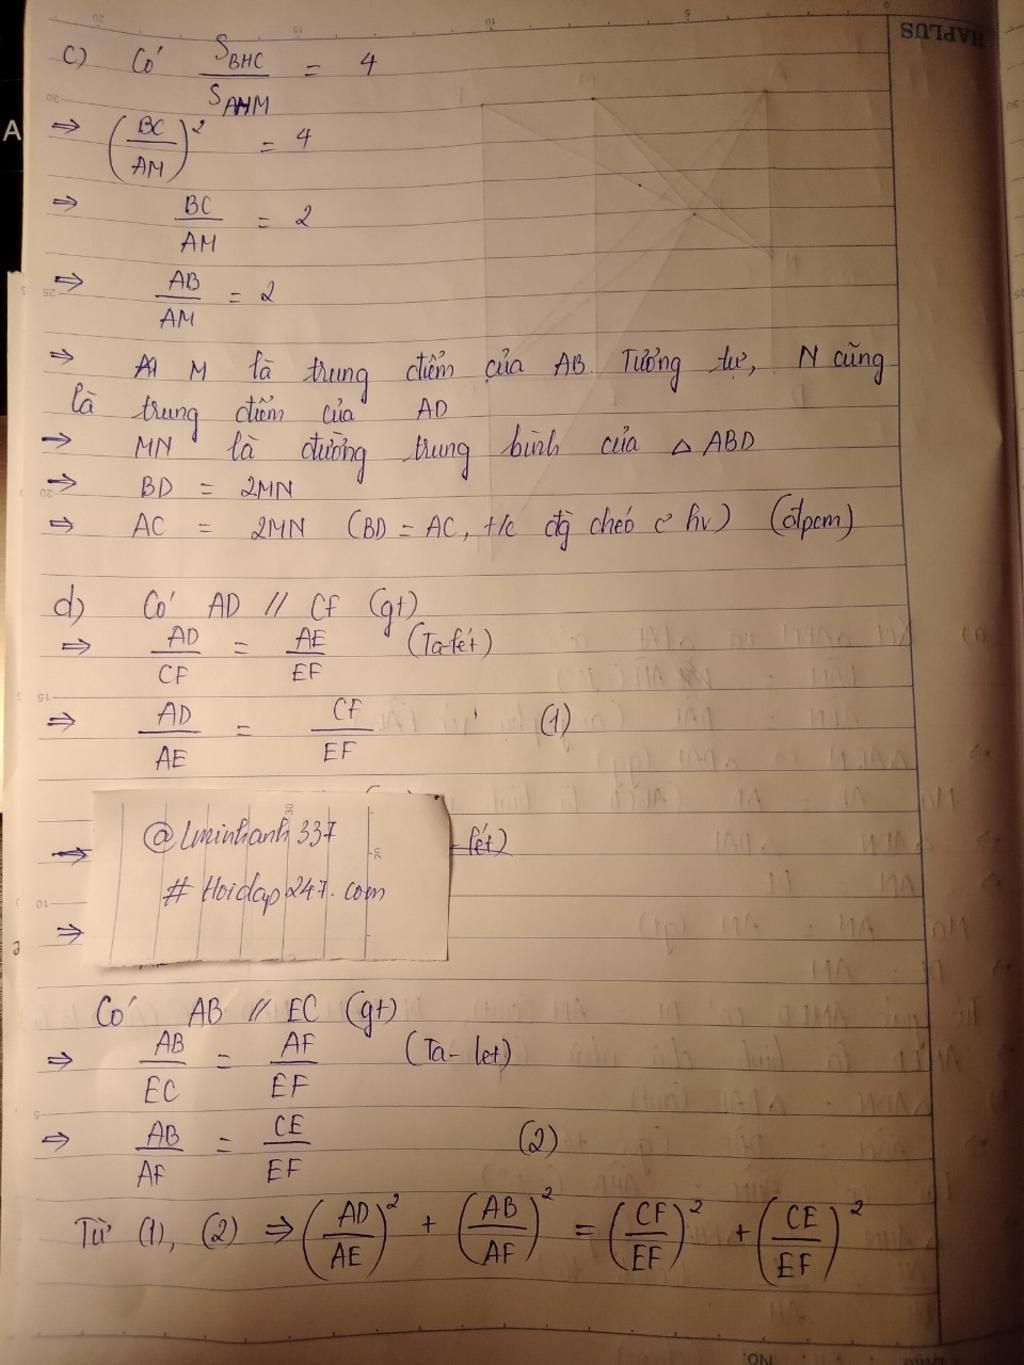 c) Có S_BHC / S_AHM = 4
⇒ (BC/AM)² = 4
⇒ BC/AM = 2
⇒ AB/AM = 2
⇒ M là trung điểm của AB. Tương tự, N cũng
là trung điểm của AD
⇒ MN là đường trung bình của △ ABD
⇒ BD = 2MN
⇒ AC = 2MN (BD = AC, t/c đg chéo c̉ hv) (đpcm)
d) Có AD // CF (gt)
⇒ AD/CF = AE/EF (Ta-fét)
⇒ AD/AE = CF/EF (1)
@Lminhanh337
⇒ fét)
# Hoidap247.com
⇒
Có AB // EC (gt)
⇒ AB/EC = AF/EF (Ta-let)
⇒ AB/AF = CE/EF (2)
Từ (1), (2) ⇒ (AD/AE)² + (AB/AF)² = (CF/EF)² + (CE/EF)²
HAPLUS